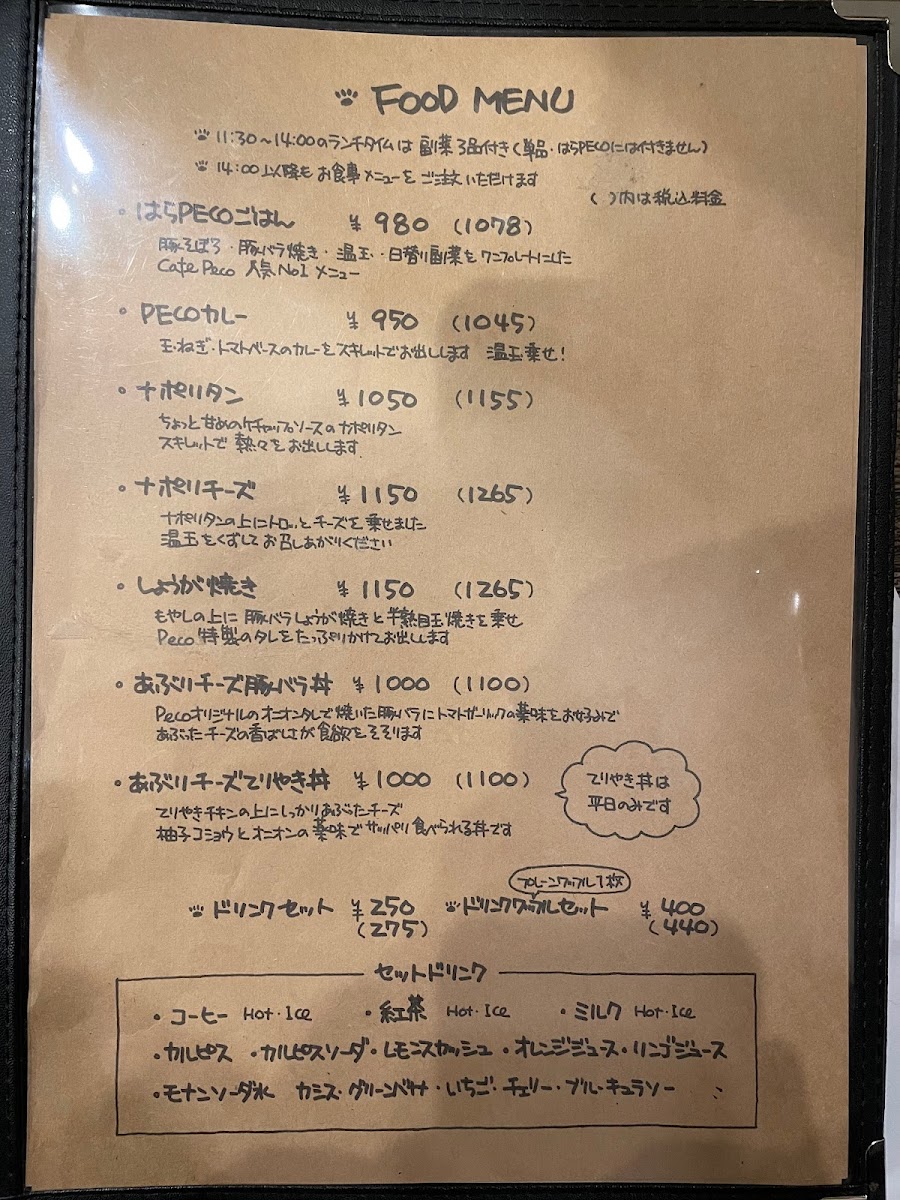 FOOD MENU
11:30～14:00のランチタイムは 副菜3品付き(単品・はらPECOには付きません)
14:00以降も お食事メニューを ご注文いただけます
( )内は税込料金
・はらPECOごはん ¥980 (1078)
豚そぼろ・豚バラ焼き・温玉・日替り副菜をワンプレートにした
Cafe Peco 人気No1メニュー
・PECOカレー ¥950 (1045)
玉ねぎ・トマトベースのカレーをスキレットでお出しします 温玉乗せ!
・ナポリタン ¥1050 (1155)
ちょっと甘めのケチャップソースのナポリタン
スキレットで熱々をお出しします
・ナポリチーズ ¥1150 (1265)
ナポリタンの上にトロッとチーズを乗せました
温玉をくずしてお召しあがりください
・しょうが焼き ¥1150 (1265)
もやしの上に豚バラしょうが焼きと半熟目玉焼きを乗せ
Peco特製のタレをたっぷりかけてお出しします
・あぶりチーズ豚バラ丼 ¥1000 (1100)
Pecoオリジナルのオニオンタレで焼いた豚バラにトマトガーリックの薬味をお好みで
あぶったチーズの香ばしさが食欲をそそります
・あぶりチーズてりやき丼 ¥1000 (1100)
てりやきチキンの上にしっかりあぶったチーズ
柚子コショウとオニオンの薬味でサッパリ食べられる丼です
てりやき丼は
平日のみです
プレーンワッフル1枚
ドリンクセット ¥250 ドリンクワッフルセット ¥400
(275) (440)
セットドリンク
・コーヒー Hot・Ice ・紅茶 Hot・Ice ・ミルク Hot・Ice
・カルピス ・カルピスソーダ・レモンスカッシュ ・オレンジジュース・リンゴジュース
・モナンソーダ氷 カシス・グリーンバナナ・いちご・チェリー・ブルーキュラソー